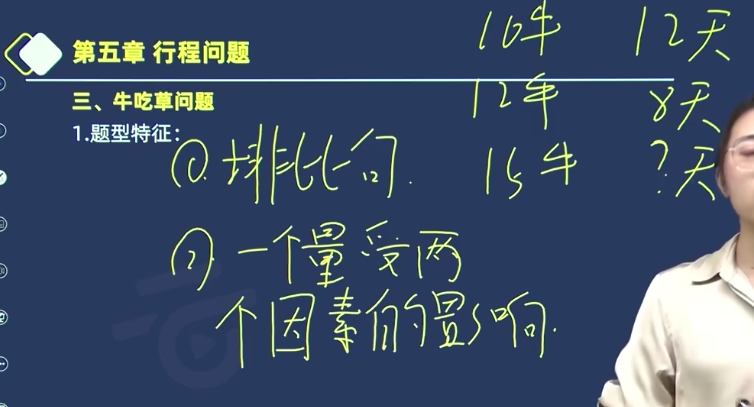 第五章 行程问题
三、牛吃草问题
1.题型特征：
①.排比句.
②.一个量受两
个因素的影响.
10牛 12天
12牛 8天
15牛 ?天